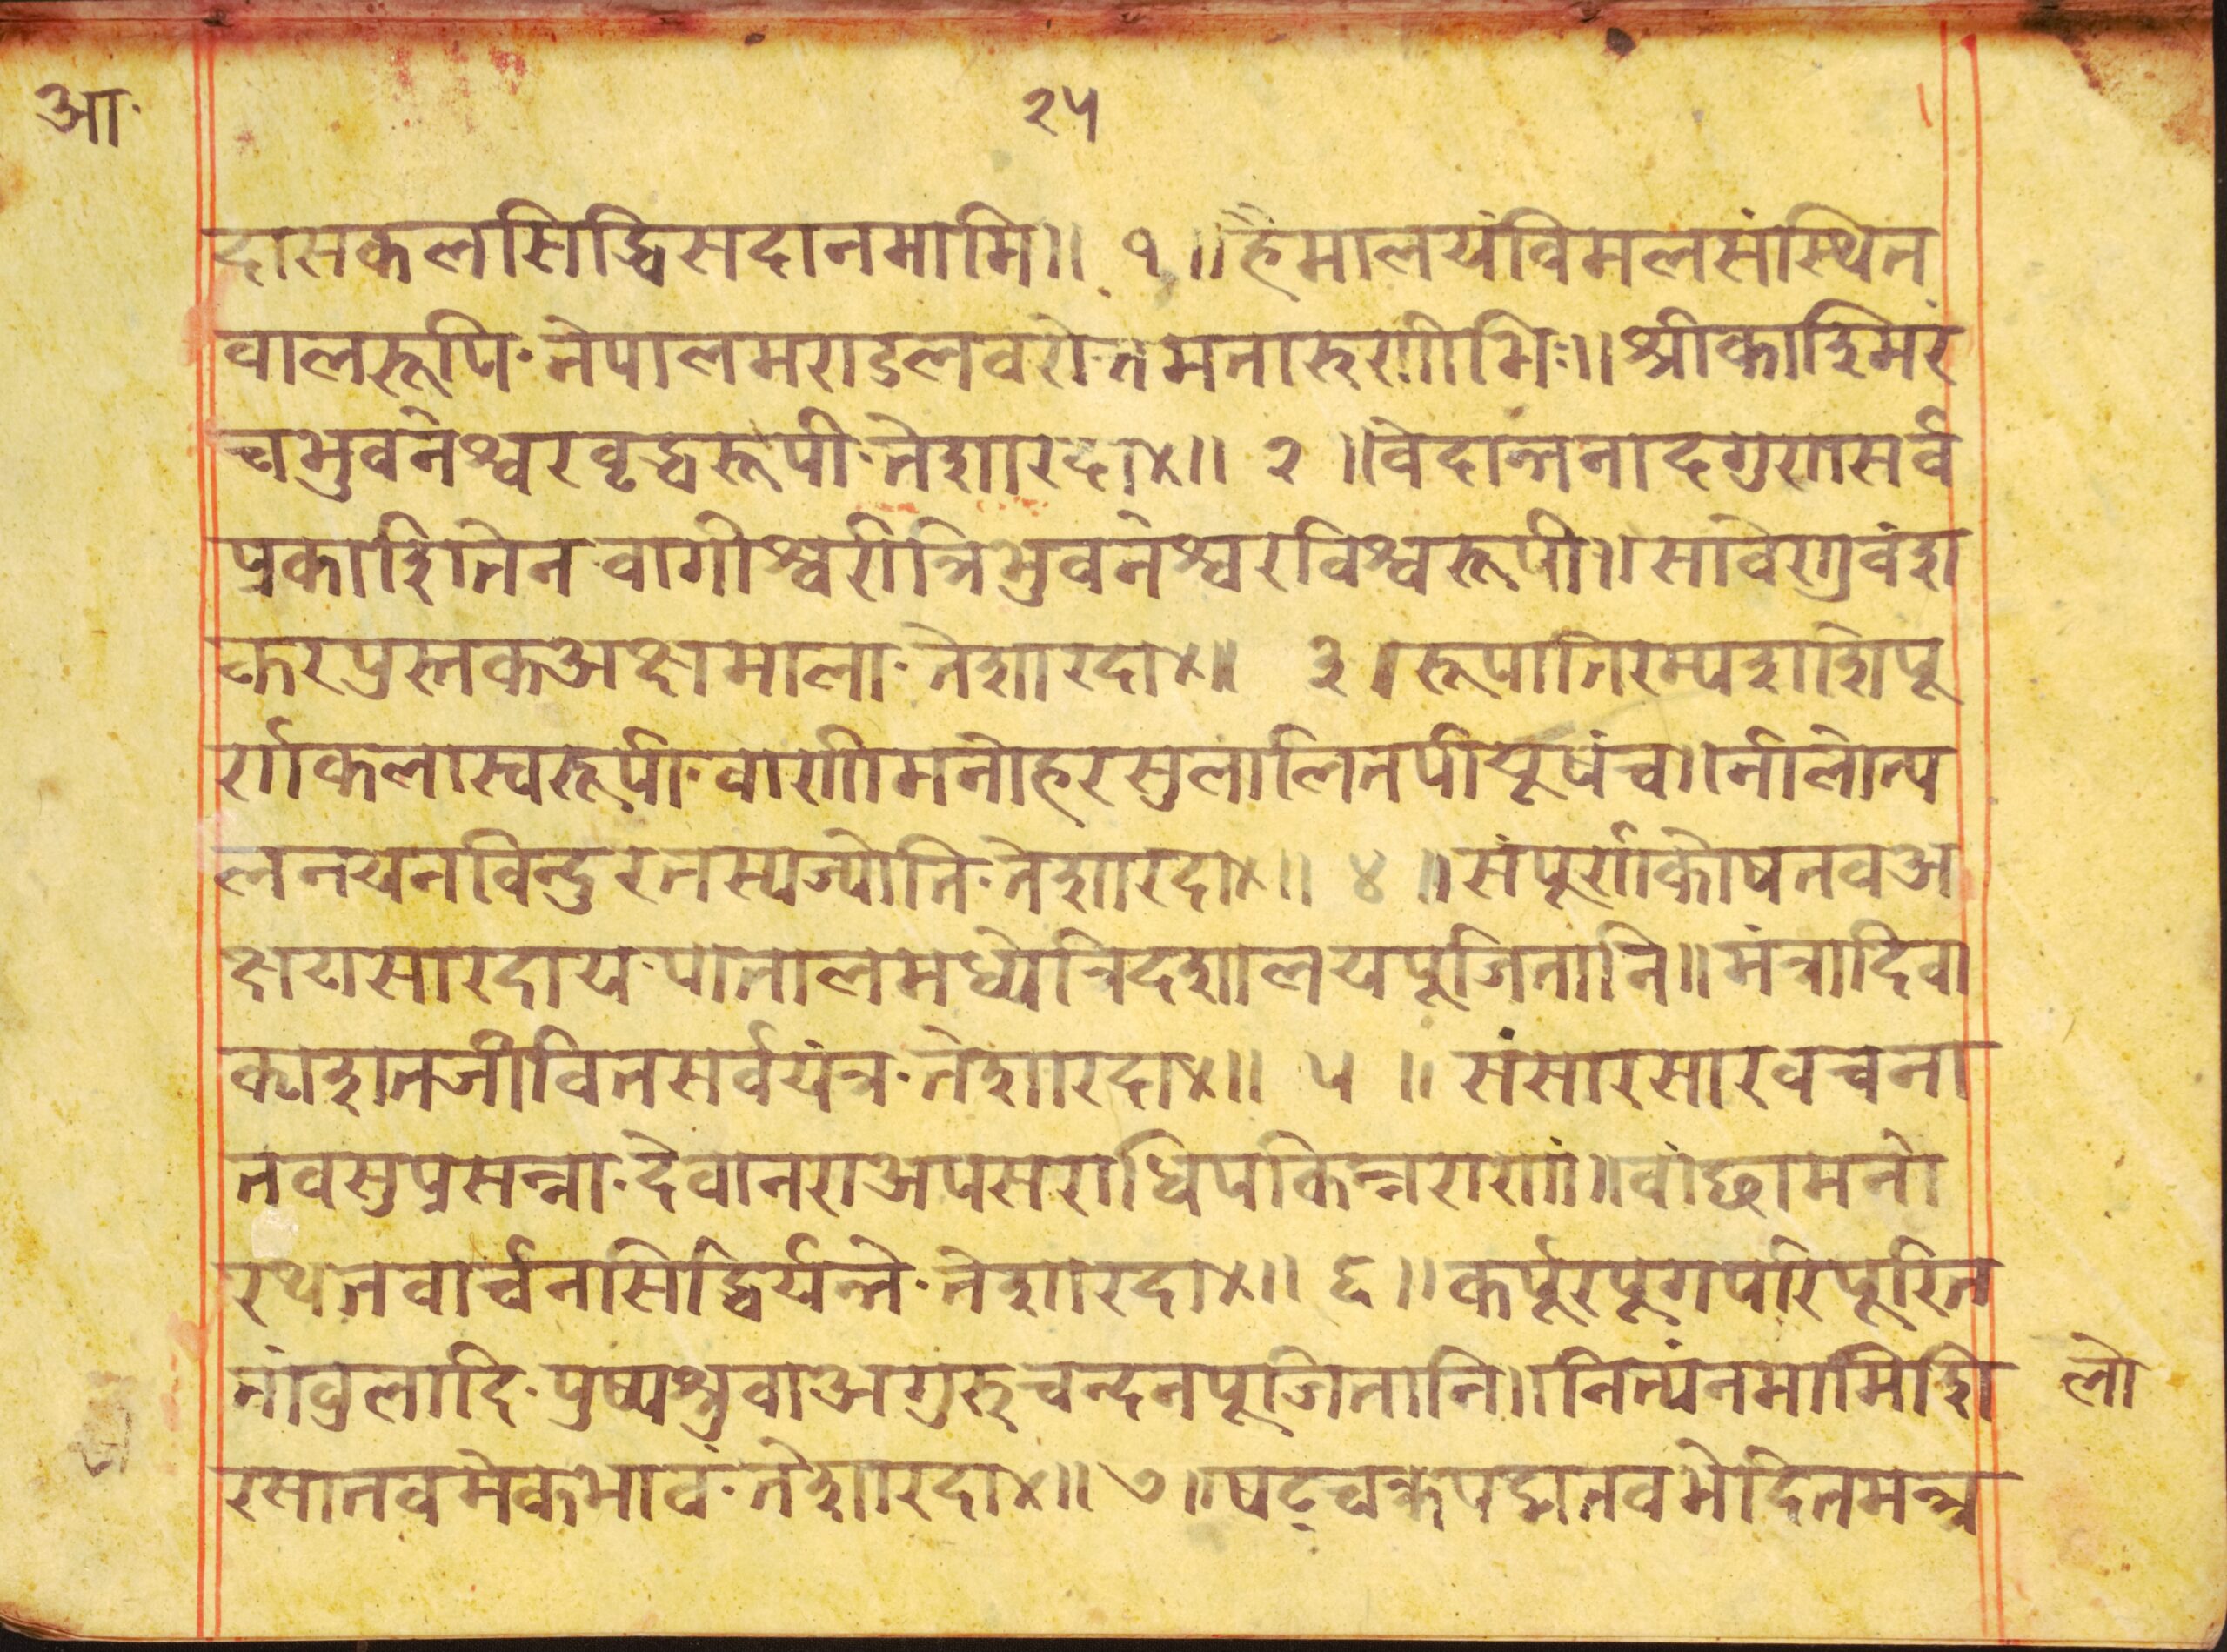 आ·
२५
दासकलसिद्धिसदानमामि॥ १ ॥हैमालयंविमलसंस्थित
वालरूपि·नेपालमण्डलवरोतमनारुणीभिः॥श्रीकाशिमरं
चभुवनेश्वरवृद्धरूपी·तेशारदा४॥ २ ॥वेदान्तनादगुणसर्व
प्रकाशितेन·वागीश्वरीत्रिभुवनेश्वरविश्वरूपी॥सावेरगुवंश
करपुस्तकअक्षमाला·तेशारदा४॥ ३॥रूपागिरम्यशशिपू
र्णकलास्वरूपी·वाणीमनोहरसुलालितपीयूषंच॥नीलोत्प
लनयनविन्दुरतस्यज्योति·तेशारदा४॥ ४ ॥संपूर्णकोषतवअ
क्षयसारदाय·पातालमध्येत्रिदशालयपूजितानि॥मंत्रादिवा
काशतजीवितसर्वयंत्र·तेशारदा४॥ ५ ॥ संसारसारवचना
तवसुप्रसन्ना·देवानराअपसराधिपकिन्नराणां॥वांछामनो
रथतवार्चनसिद्धिर्यन्ते·तेशारदा४॥ ६॥कर्पूरपूगपरिपूरित
तांवुलादि·पुष्पश्रुवाअगुरुचन्दनपूजितानि॥नित्यंनमामिशि
लो
रसातवमेकभावं·तेशारदा४॥ ७॥षट्चक्रपद्मतवभेदितमन्त्र